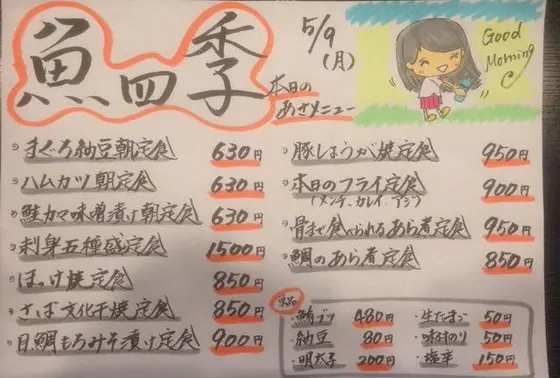 魚四季
5/9
(月)
本日の
あさメニュー
Good
Morning
まぐろ納豆朝定食 630円
ハムカツ朝定食 630円
鮭カマ味噌漬け朝定食 630円
刺身五種盛定食 1500円
ほっけ焼定食 850円
さば文化干焼定食 850円
目鯛もろみそ漬け定食 900円
豚しょうが焼定食 950円
本日のフライ定食 900円
(メンチ、カレイ、アジ)
骨まで食べられるあら煮定食 950円
鯛のあら煮定食 850円
単品
・鮪ブツ 480円
・納豆 80円
・明太子 200円
・生たまご 50円
・味付のり 50円
・塩辛 150円